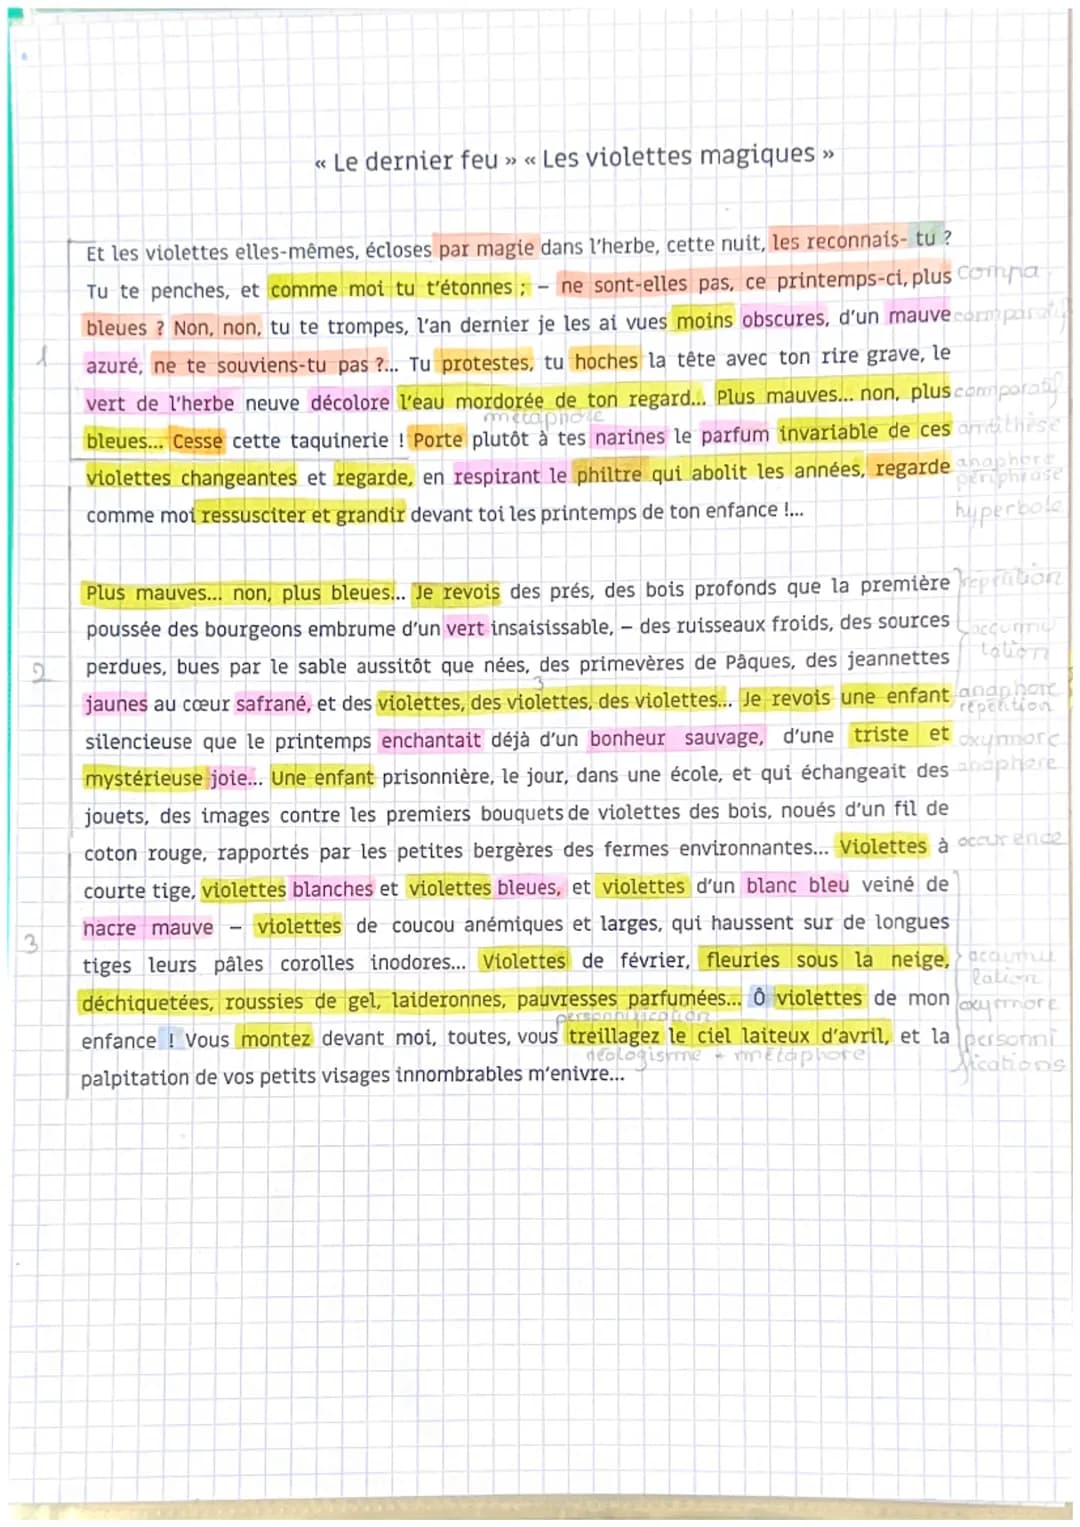 « Le dernier feu » « Les violettes magiques »
Et les violettes elles-mêmes, écloses par magie dans l'herbe, cette nuit, les reconnais- tu ?
Tu te penches, et comme moi tu t'étonnes ; – ne sont-elles pas, ce printemps-ci, plus compa
bleues ? Non, non, tu te trompes, l'an dernier je les ai vues moins obscures, d'un mauve comparatif
1
azuré, ne te souviens-tu pas ?... Tu protestes, tu hoches la tête avec ton rire grave, le
vert de l'herbe neuve décolore l'eau mordorée de ton regard... Plus mauves... non, plus comparatif
métaphore
bleues... Cesse cette taquinerie ! Porte plutôt à tes narines le parfum invariable de ces antithèse
violettes changeantes et regarde, en respirant le philtre qui abolit les années, regarde anaphore
périphrase
comme moi ressusciter et grandir devant toi les printemps de ton enfance !... hyperbole
Plus mauves... non, plus bleues... Je revois des prés, des bois profonds que la première répétition
poussée des bourgeons embrume d'un vert insaisissable, – des ruisseaux froids, des sources accumu
2
perdues, bues par le sable aussitôt que nées, des primevères de Pâques, des jeannettes lation
3
jaunes au cœur safrané, et des violettes, des violettes, des violettes... Je revois une enfant anaphore
répétition
silencieuse que le printemps enchantait déjà d'un bonheur sauvage, d'une triste et oxymore
mystérieuse joie... Une enfant prisonnière, le jour, dans une école, et qui échangeait des anaphore
jouets, des images contre les premiers bouquets de violettes des bois, noués d'un fil de
coton rouge, rapportés par les petites bergères des fermes environnantes... Violettes à occurence
courte tige, violettes blanches et violettes bleues, et violettes d'un blanc bleu veiné de
nacre mauve – violettes de coucou anémiques et larges, qui haussent sur de longues
3
tiges leurs pâles corolles inodores... Violettes de février, fleuries sous la neige, accumu
lation
déchiquetées, roussies de gel, laideronnes, pauvresses parfumées... Ô violettes de mon oxymore
personnification
enfance ! Vous montez devant moi, toutes, vous treillagez le ciel laiteux d'avril, et la personni
néologisme + métaphore fications
palpitation de vos petits visages innombrables m'enivre...